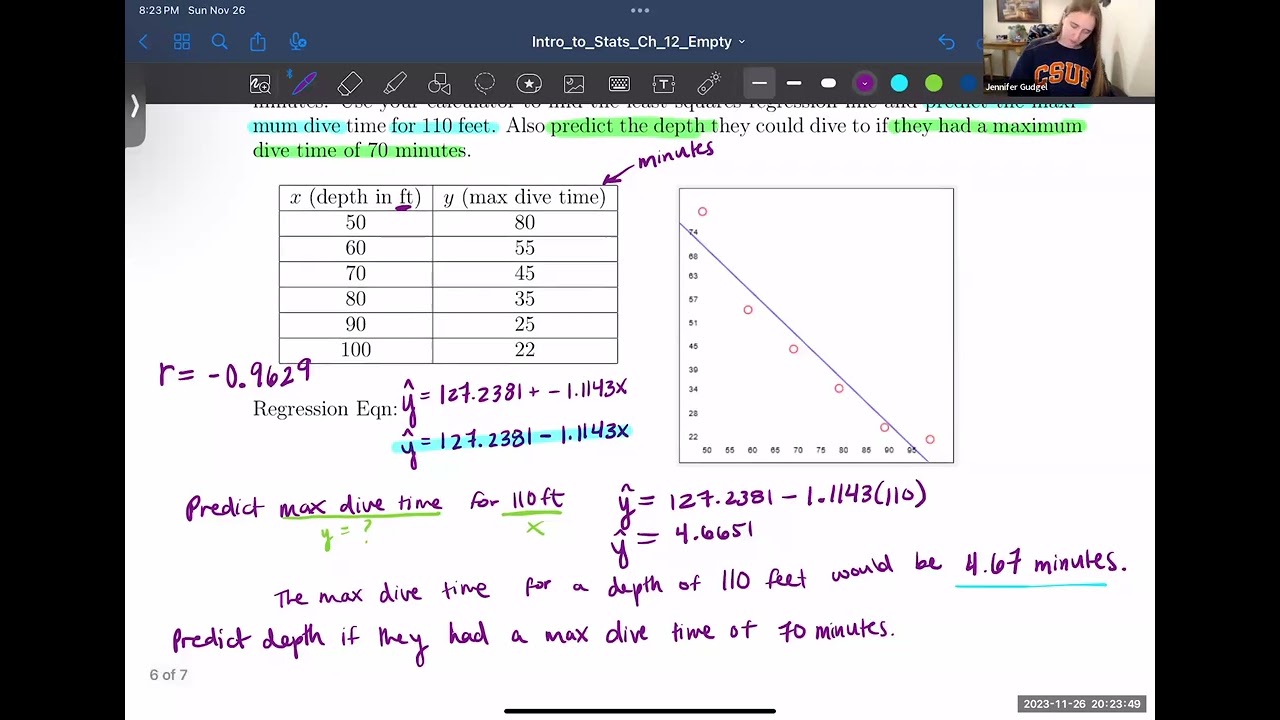 8:23 PM Sun Nov 26
Intro_to_Stats_Ch_12_Empty
CSUF
Jennifer Gudgel
minutes. Use your calculator to find the least squares regression line and predict the maxi-
mum dive time for 110 feet. Also predict the depth they could dive to if they had a maximum
dive time of 70 minutes.
minutes
x (depth in ft) y (max dive time)
50 80
60 55
70 45
80 35
90 25
100 22
74
68
63
57
51
45
39
34
28
22
50 55 60 65 70 75 80 85 90 95
r = -0.9629
Regression Eqn: ŷ = 127.2381 + -1.1143x
ŷ = 127.2381 - 1.1143x
Predict max dive time for 110ft
y = ? x
ŷ = 127.2381 - 1.1143(110)
ŷ = 4.6651
The max dive time for a depth of 110 feet would be 4.67 minutes.
Predict depth if they had a max dive time of 70 minutes.
6 of 7
2023-11-26 20:23:49